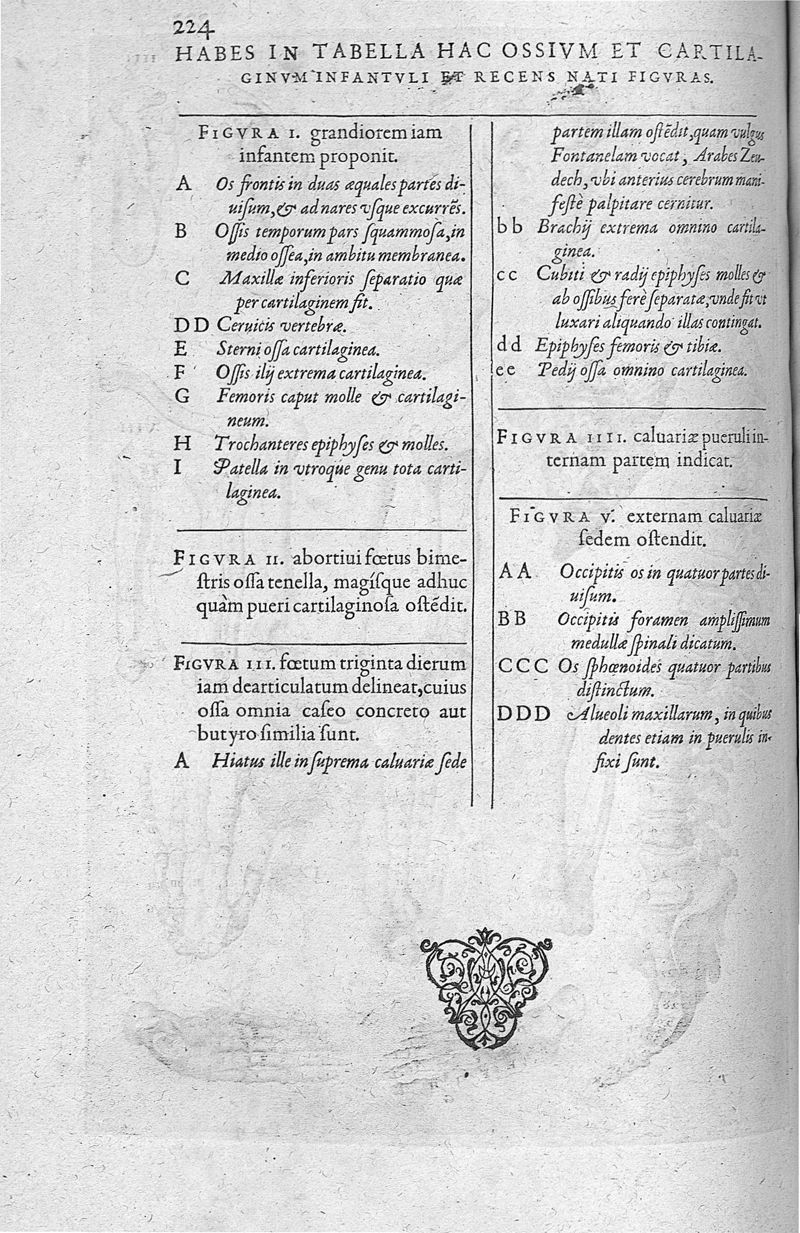 224
HABES IN TABELLA HAC OSSIVM ET CARTILA-
GINVM INFANTVLI ET RECENS NATI FIGVRAS.
FIGVRA I. grandiorem iam
infantem proponit.
A Os frontis in duas æquales partes di-
uisum, & ad nares vſque excurrẽs.
B Oſſis temporum pars ſquammoſa, in
medio oſſea, in ambitu membranea.
C Maxillæ inferioris ſeparatio quæ
per cartilaginem fit.
D D Ceruicis vertebræ.
E Sterni oſſa cartilaginea.
F Oſſis ilij extrema cartilaginea.
G Femoris caput molle & cartilagi-
neum.
H Trochanteres epiphyſes & molles.
I Patella in vtroque genu tota carti-
laginea.
FIGVRA II. abortiui fœtus bime-
ſtris oſſa tenella, magíſque adhuc
quàm pueri cartilaginoſa oſtẽdit.
FIGVRA III. fœtum triginta dierum
iam dearticulatum delineat, cuius
oſſa omnia caſeo concreto aut
butyro ſimilia ſunt.
A Hiatus ille in ſuprema caluariæ ſede
partem illam oſtẽdit, quam vulgus
Fontanelam vocat, Arabes Zeu-
dech, vbi anterius cerebrum mani-
feſtè palpitare cernitur.
b b Brachij extrema omnino cartila-
ginea.
c c Cubiti & radij epiphyſes molles &
ab oſſibus ferè ſeparatæ, vnde fit vt
luxari aliquando illas contingat.
d d Epiphyſes femoris & tibiæ.
e e Pedij oſſa omnino cartilaginea.
FIGVRA IIII. caluariæ pueruli in-
ternam partem indicat.
FIGVRA V. externam caluariæ
ſedem oſtendit.
A A Occipitis os in quatuor partes di-
uiſum.
B B Occipitis foramen ampliſſimum
medullæ ſpinali dicatum.
C C C Os ſphœnoides quatuor partibus
diſtinctum.
D D D Alueoli maxillarum, in quibus
dentes etiam in puerulis in-
fixi ſunt.